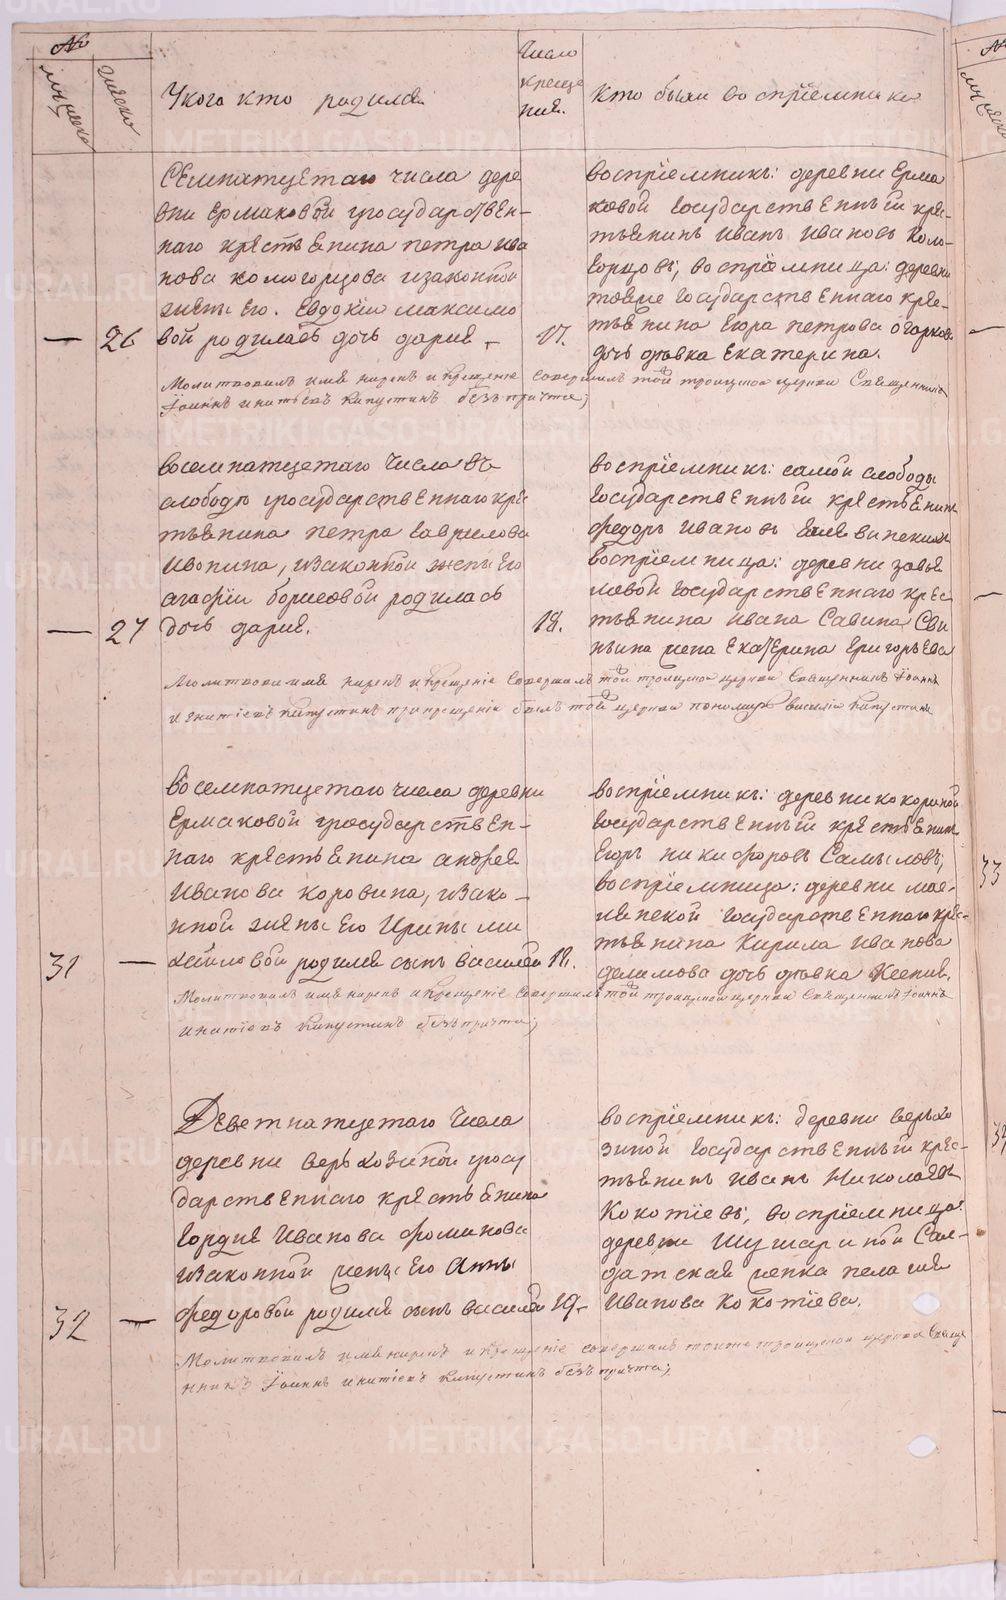 №
мужеска
женска
У кого кто родился
Число
креще
ния.
Кто были восприемники
Семнатцетаго числа дере
вни Ермаковой государствен-
наго крестьянина петра ива
нова кологорцова изаконной
жены его. Евдокiи максимо
26
вой родилась дочь дария
17.
восприемникъ: деревни Ерма
ковой государственный кре-
стьянинъ иванъ ивановъ коло-
горцовъ; восприемница: деревни
тояже государственнаго кре-
стьянина егора петрова огаркова
дочь девка Екатерина.
Молитвовалъ имя нарекъ и крещенiе совершилъ той троицкой церкви Священникъ
Iоаннъ игнатьевъ Капустинъ безъ причта;
восемнатцетаго числа въ
слободе государственнаго кре
стьянина петра гаврилова
ивонина, изаконной жены его
агафiи борисовой родилась
27
дочь дария.
18.
восприемникъ: самой слободы
государственный крестьянинъ
федоръ ивановъ
восприемница: деревни завья
ловой государственнаго крес
тьянина ивана Савина Сви
ньина жена екатерина григорьева
Молитвовалъ имя нарекъ и крещенiе совершалъ той троицкой церкви Священникъ Iоаннъ
игнатiевъ Капустинъ при крещенiи былъ той церкви пономарь василiй Капустинъ
восемнатцетаго числа деревни
Ермаковой государствен-
наго крестьянина андрея
иванова коровина, изако-
нной жены его Ирины ми
31
хайловой родился сынъ василей
18.
восприемникъ: деревни кокориной
государственный крестьянинъ
Егоръ никифоровъ Самыловъ;
восприемница: деревни
государственнаго крес-
тьянина Кирила иванова
дочь девка Ксения.
Молитвовалъ имя нарекъ и крещенiе совершилъ той троицкой церкви Священникъ Iоаннъ
игнатiевъ Капустинъ безъ причта;
Деветнатцетаго числа
деревни верхозиной госу
дарственнаго крестьянина
гордия Иванова фоминова
изаконной жены его Анны
32
федоровой родился сынъ василей
19.
восприемникъ: деревни верхо
зиной государственный крес-
тьянинъ иванъ Николаевъ
Кокотiевъ; восприемница:
деревни Шушариной Сал-
датская женка пелагия
Иванова Кокотiева.
Молитвовалъ имя нарекъ и крещенiе совершалъ тояже троицкой церкви Свяще
нникъ Iоаннъ игнатiевъ Капустинъ безъ причта;
33
METRIKI.GASO-URAL.RU